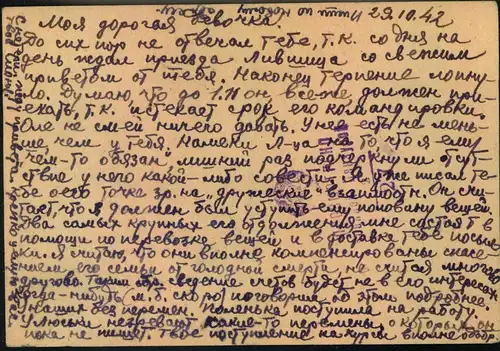 Пиши по новому адресу. 29.10.42
Моя дорогая девочка!
До сих пор не отвечал тебе, т.к. со дня на
день ждал приезда Лившица со свежим
приветом от тебя. Наконец терпение лопну-
ло. Думаю, что до 1.11 он все же должен при-
ехать, т.к. истекает срок его командировки.
Оле не смей ничего давать. У нее есть не мень-
ше, чем у тебя. Намеки Л-ца на то, что я ему
чем-то обязан, лишний раз подчеркнули отсут-
ствие у него какой-либо совести. Я уже писал те-
бе о его точке зр. на "дружеские" взаимоотн. Он счи-
тает, что я должен был уступить ему половину вещей.
Два самых крупных его одолжения мне состоят в
помощи по перевозке вещей и в доставке тебе посыл-
ки. Я считаю, что они вполне компенсированы спасе-
нием его семьи от голодной смерти, не считая многого
другого. Таким обр. сведение счетов будет не в его интересах.
Когда-нибудь, м.б. скоро, поговорим об этом подробнее.
У наших без перемен. Поленька поступила на работу.
У Люськи назревают какие-то перемены, о которых он
пока не пишет. Твое поступление на курсы вполне одобр.